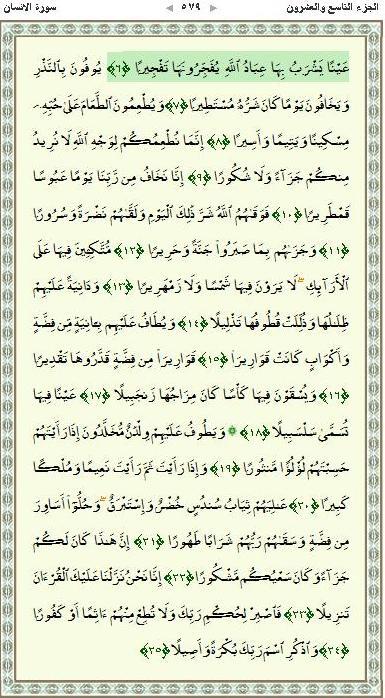 الجزء التاسع والعشرون ٥٧٩ سورة الانسان
عَيْنًا يَشْرَبُ بِهَا عِبَادُ ٱللَّهِ يُفَجِّرُونَهَا تَفْجِيرًا ﴿٦﴾ يُوفُونَ بِٱلنَّذْرِ
وَيَخَافُونَ يَوْمًا كَانَ شَرُّهُۥ مُسْتَطِيرًا ﴿٧﴾ وَيُطْعِمُونَ ٱلطَّعَامَ عَلَىٰ حُبِّهِۦ
مِسْكِينًا وَيَتِيمًا وَأَسِيرًا ﴿٨﴾ إِنَّمَا نُطْعِمُكُمْ لِوَجْهِ ٱللَّهِ لَا نُرِيدُ
مِنكُمْ جَزَآءً وَلَا شُكُورًا ﴿٩﴾ إِنَّا نَخَافُ مِن رَّبِّنَا يَوْمًا عَبُوسًا
قَمْطَرِيرًا ﴿١٠﴾ فَوَقَىٰهُمُ ٱللَّهُ شَرَّ ذَٰلِكَ ٱلْيَوْمِ وَلَقَّىٰهُمْ نَضْرَةً وَسُرُورًا
﴿١١﴾ وَجَزَىٰهُم بِمَا صَبَرُوا۟ جَنَّةً وَحَرِيرًا ﴿١٢﴾ مُّتَّكِـِٔينَ فِيهَا عَلَى
ٱلْأَرَآئِكِ ۖ لَا يَرَوْنَ فِيهَا شَمْسًا وَلَا زَمْهَرِيرًا ﴿١٣﴾ وَدَانِيَةً عَلَيْهِمْ
ظِلَٰلُهَا وَذُلِّلَتْ قُطُوفُهَا تَذْلِيلًا ﴿١٤﴾ وَيُطَافُ عَلَيْهِم بِـَٔانِيَةٍ مِّن فِضَّةٍ
وَأَكْوَابٍ كَانَتْ قَوَارِيرَا۠ ﴿١٥﴾ قَوَارِيرَا۟ مِن فِضَّةٍ قَدَّرُوهَا تَقْدِيرًا
﴿١٦﴾ وَيُسْقَوْنَ فِيهَا كَأْسًا كَانَ مِزَاجُهَا زَنجَبِيلًا ﴿١٧﴾ عَيْنًا فِيهَا
تُسَمَّىٰ سَلْسَبِيلًا ﴿١٨﴾ ۞ وَيَطُوفُ عَلَيْهِمْ وِلْدَٰنٌ مُّخَلَّدُونَ إِذَا رَأَيْتَهُمْ
حَسِبْتَهُمْ لُؤْلُؤًا مَّنثُورًا ﴿١٩﴾ وَإِذَا رَأَيْتَ ثَمَّ رَأَيْتَ نَعِيمًا وَمُلْكًا
كَبِيرًا ﴿٢٠﴾ عَٰلِيَهُمْ ثِيَابُ سُندُسٍ خُضْرٌ وَإِسْتَبْرَقٌ ۖ وَحُلُّوٓا۟ أَسَاوِرَ
مِن فِضَّةٍ وَسَقَىٰهُمْ رَبُّهُمْ شَرَابًا طَهُورًا ﴿٢١﴾ إِنَّ هَٰذَا كَانَ لَكُمْ
جَزَآءً وَكَانَ سَعْيُكُم مَّشْكُورًا ﴿٢٢﴾ إِنَّا نَحْنُ نَزَّلْنَا عَلَيْكَ ٱلْقُرْءَانَ
تَنزِيلًا ﴿٢٣﴾ فَٱصْبِرْ لِحُكْمِ رَبِّكَ وَلَا تُطِعْ مِنْهُمْ ءَاثِمًا أَوْ كَفُورًا
﴿٢٤﴾ وَٱذْكُرِ ٱسْمَ رَبِّكَ بُكْرَةً وَأَصِيلًا ﴿٢٥﴾